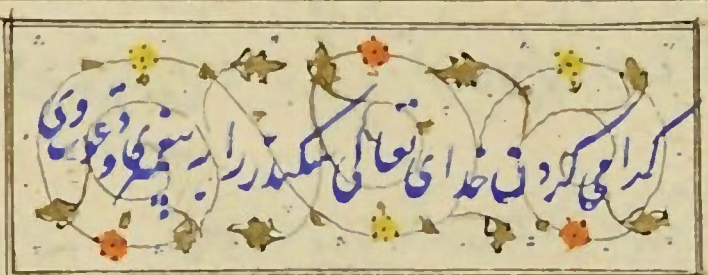 گرامی کردن خدای تعالی سکندر را به پیغمبری و دعوت وی